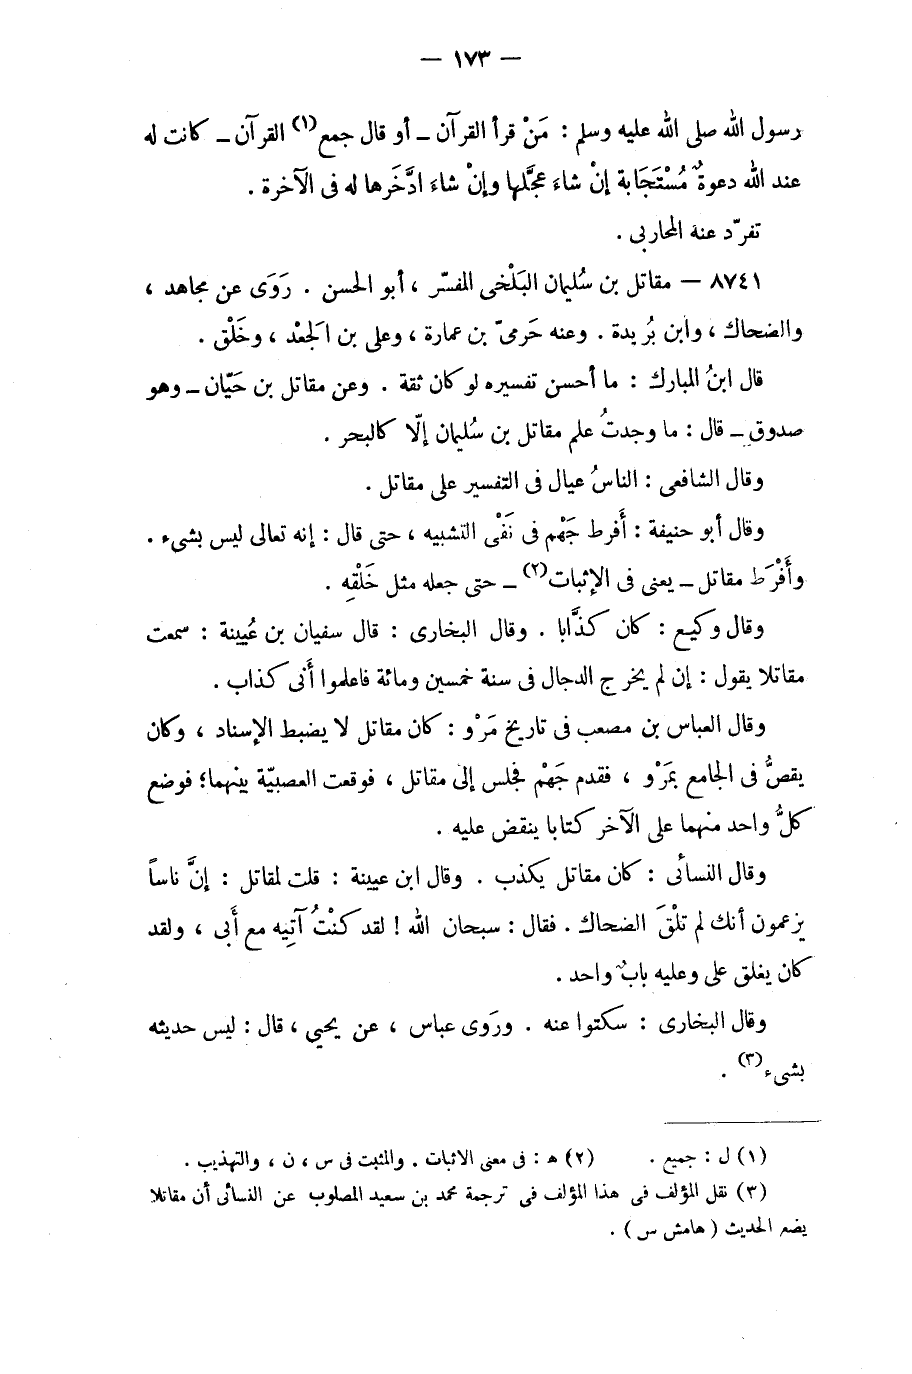 — ١٧٣ —
رسول الله صلى الله عليه وسلم : مَنْ قرأ القرآن ـ أو قال جمع(١) القرآن ـ كانت له
عند الله دعوةٌ مُسْتَجَابة إنْ شاءَ عجَّلها وإنْ شاءَ ادَّخَرها له فى الآخرة .
تفرّد عنه المحاربى .
٨٧٤١ — مقاتل بن سُليمان البَلْخى المفسّر ، أبو الحسن . رَوَى عن مجاهد ،
والضحاك ، وابن بُريدة . وعنه حَرمىّ بن عمارة ، وعلى بن الجعْد ، وخَلْق .
قال ابنُ المبارك : ما أحسن تفسيره لو كان ثقة . وعن مقاتل بن حَيّان ـ وهو
صدوق ـ قال : ما وجدتُ علم مقاتل بن سُليمان إلّا كالبحر .
وقال الشافعى : الناسُ عيال فى التفسير على مقاتل .
وقال أبو حنيفة : أَفرط جَهْم فى نَفْى التشبيه ، حتى قال : إنه تعالى ليس بشىء .
وأَفْرَط مقاتل ـ يعنى فى الإثبات(٢) ـ حتى جعله مثل خَلْقِه .
وقال وكيع : كان كذَّابا . وقال البخارى : قال سفيان بن عُيينة : سمعت
مقاتلا يقول : إن لم يخرج الدجال فى سنة خمسين ومائة فاعلموا أَنى كذاب .
وقال العباس بن مصعب فى تاريخ مَرْو : كان مقاتل لا يضبط الإسناد ، وكان
يقصُّ فى الجامع بمَرْو ، فقدم جَهْم فجلس إلى مقاتل ، فوقعت العصبيّة بينهما؛ فوضع
كلُّ واحد منهما على الآخر كتابا ينقض عليه .
وقال النسائى : كان مقاتل يكذب . وقال ابن عيينة : قلت لمقاتل : إنَّ ناساً
يزعمون أنك لم تلْقَ الضحاك . فقال : سبحان الله ! لقد كنْتُ آتِيه مع أَبى ، ولقد
كان يغلق على وعليه بابٌ واحد .
وقال البخارى : سكتوا عنه . ورَوى عباس ، عن يحيى ، قال : ليس حديثه
بشىء(٣) .
(١) ل : جميع . (٢) ه : فى معنى الاثبات . والمثبت فى س ، ن ، والتهذيب .
(٣) نقل المؤلف فى هذا المؤلف فى ترجمة محمد بن سعيد المصلوب عن النسائى أن مقاتلا
يضع الحديث ( هامش س ) .